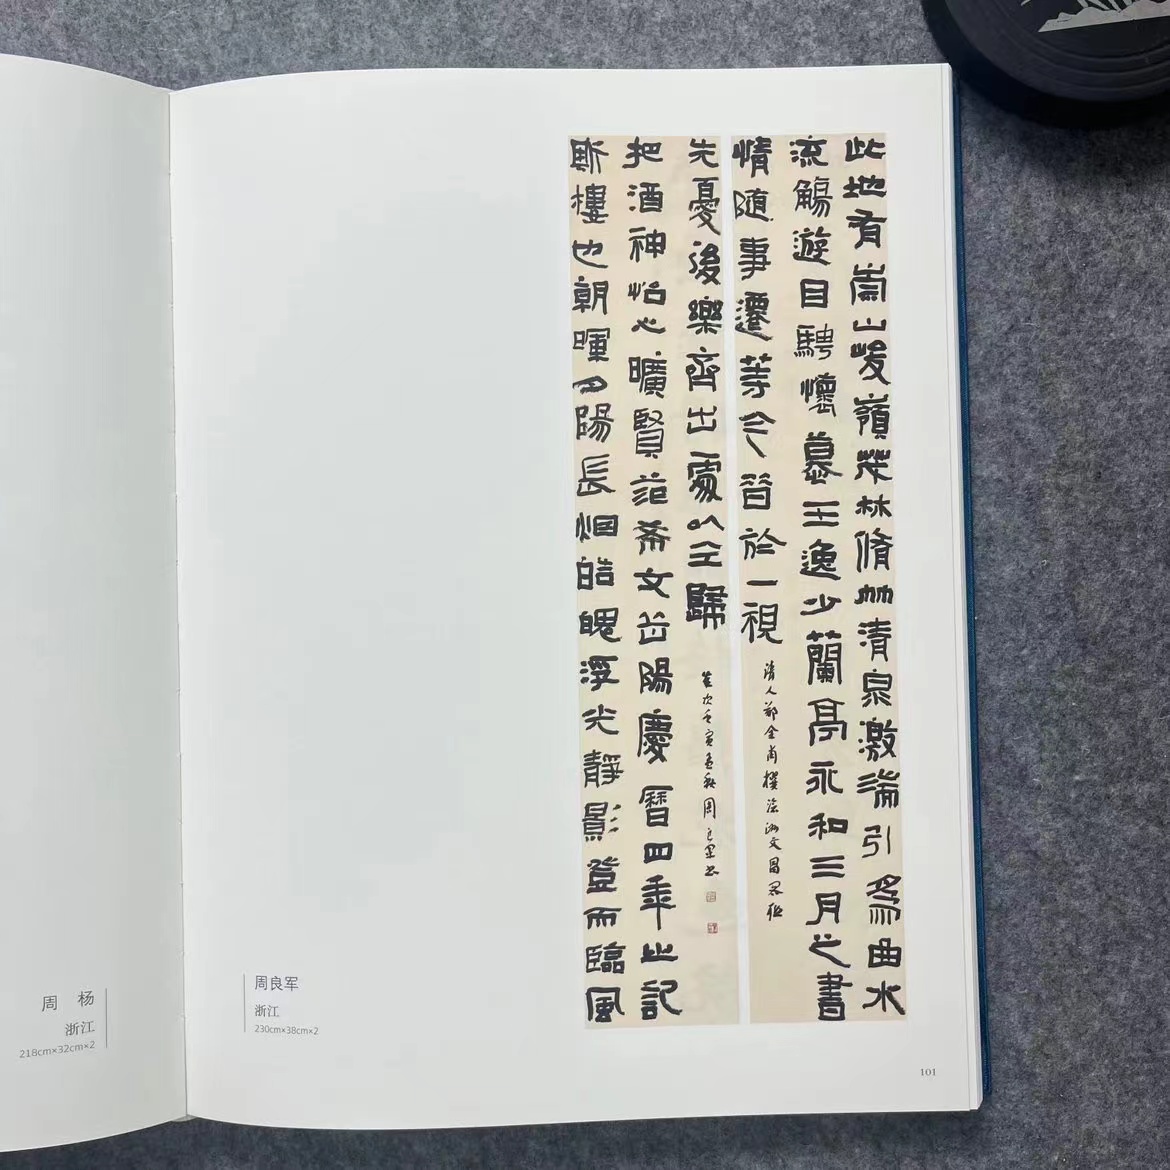 此地有崇山峻嶺茂林脩竹清泉激湍引爲曲水
流觴遊目騁懷慕王逸少蘭亭永和三月之書
情隨事遷等今昔於一視
清人郑全甫撰 文昌
斯樓也朝暉夕陽長烟皓魄浮光靜影登而臨風
把酒神怡心曠賢范希文岳陽慶曆四年之記
先憂後樂齊出處以仝歸
歲次壬寅孟秋周良军书
周良军
浙江
230cm×38cm×2
101
周 杨
浙江
218cm×32cm×2